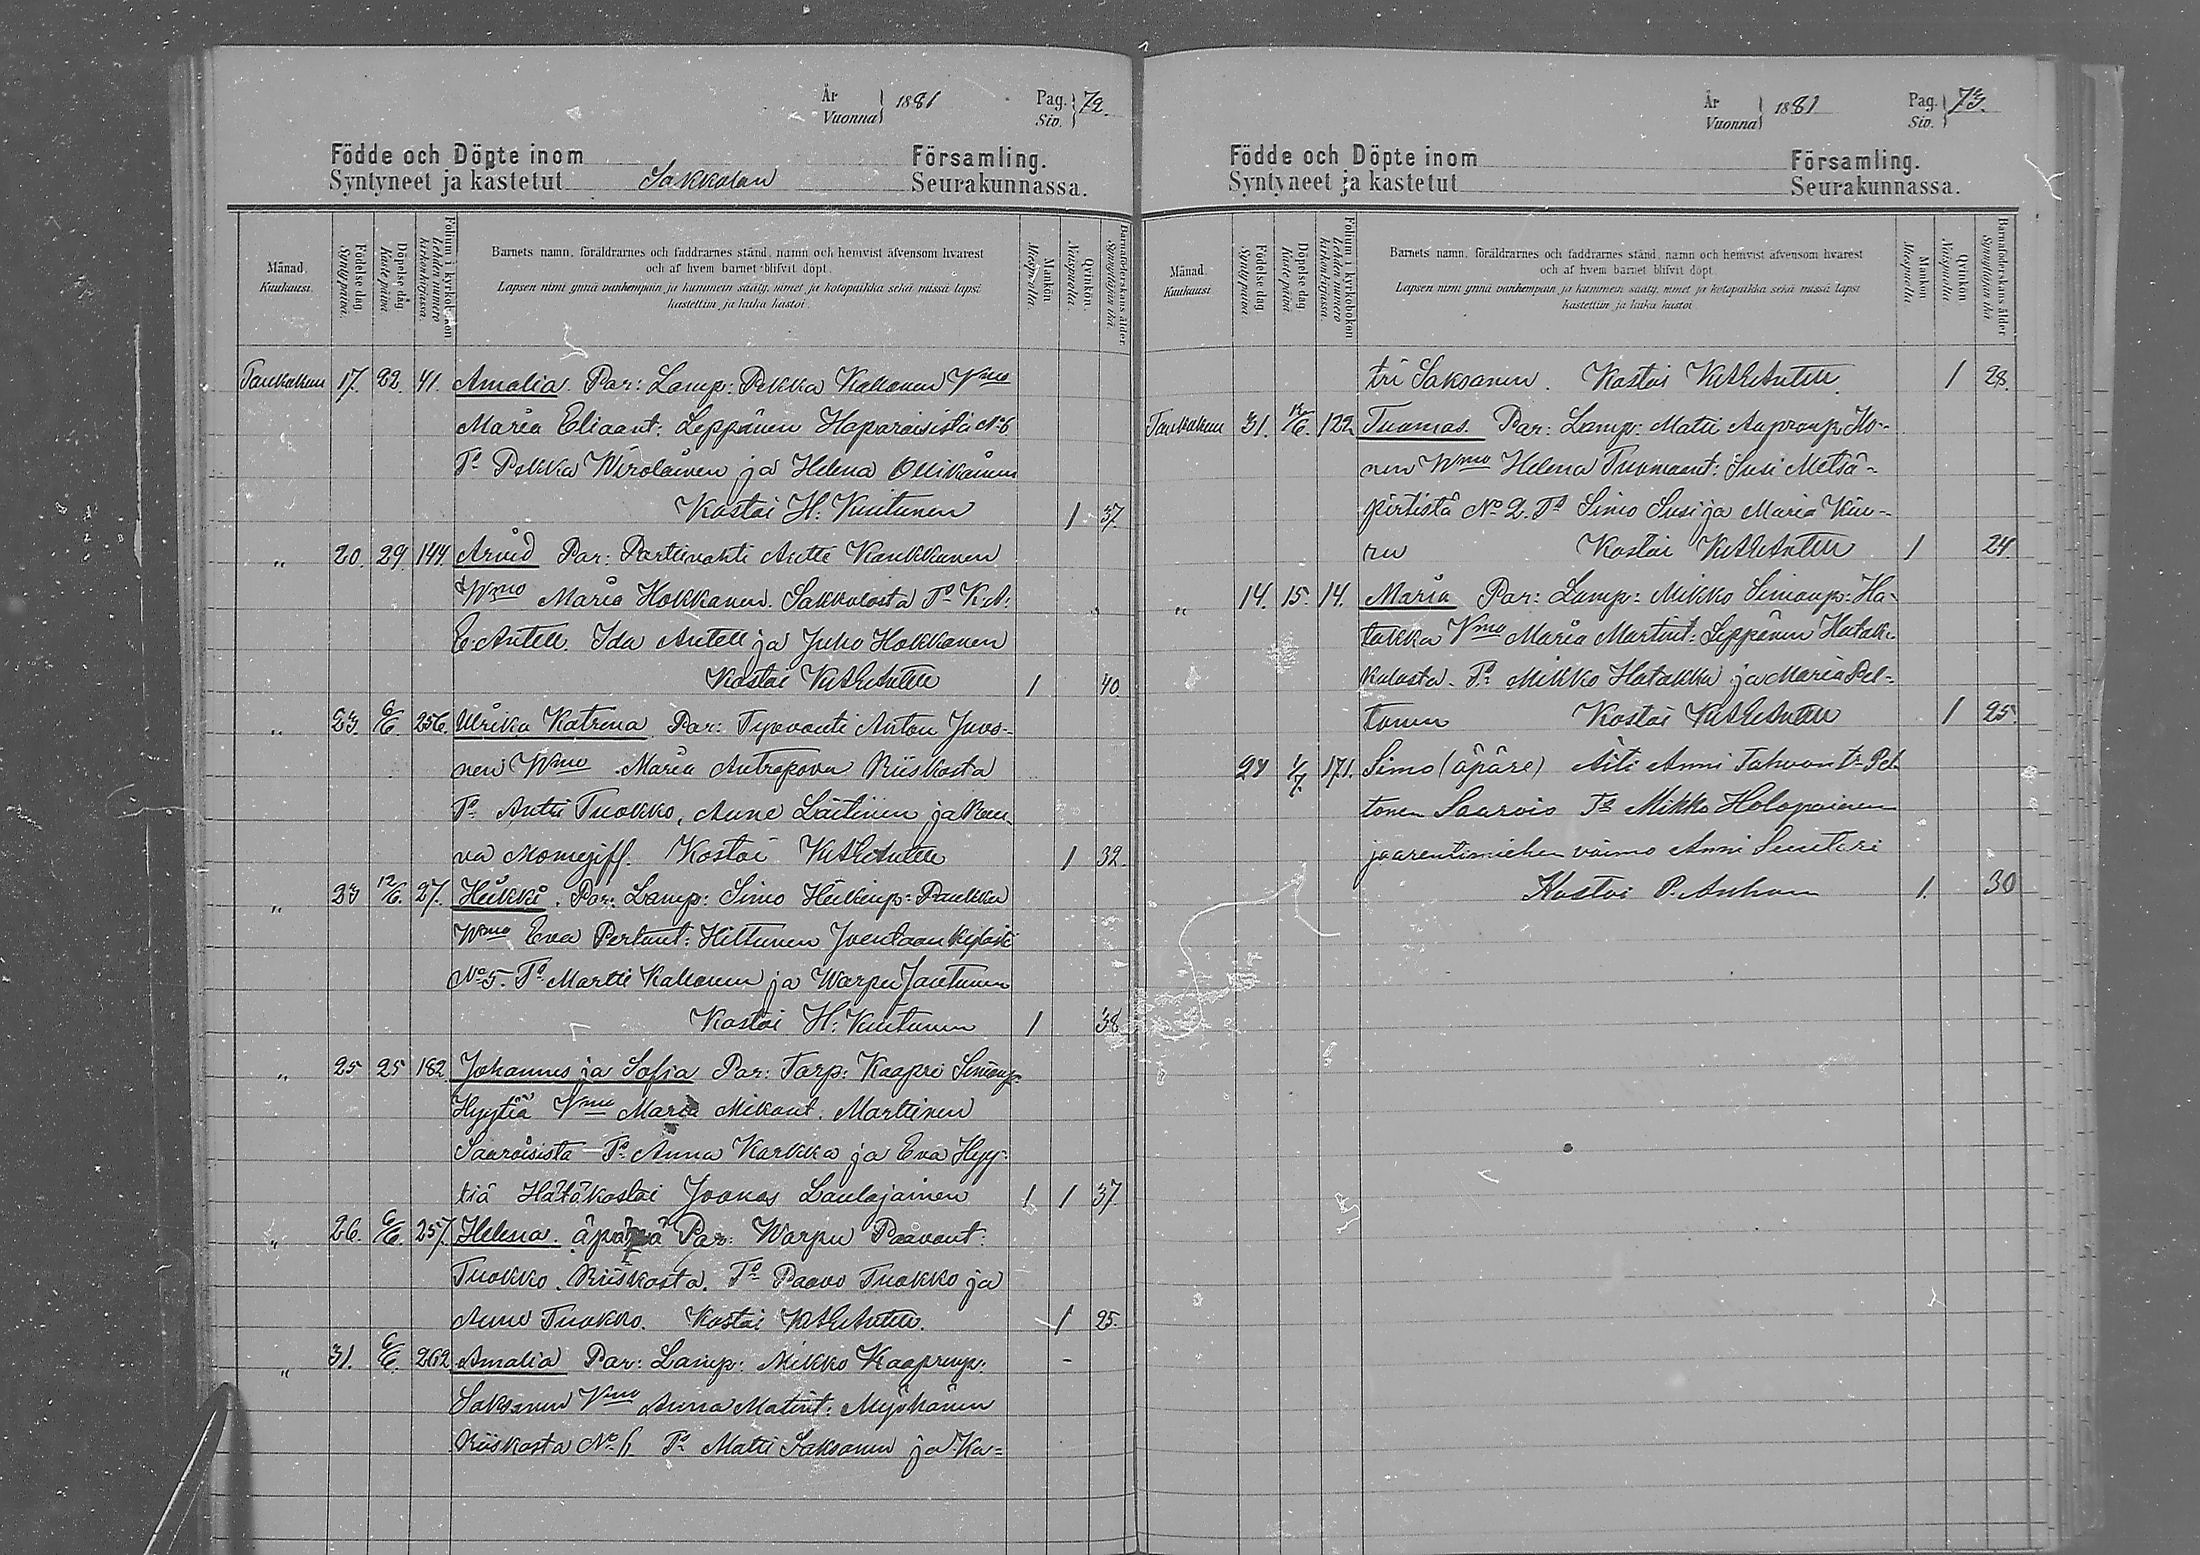 År
Vuonna 1881
Pag.
Siv. 72.
Födde och Döpte inom Församling.
Syntyneet ja kastetut Sakkolan Seurakunnassa.
Månad. Kuukausi.
Födelse dag Syntypäivä.
Döpelse dag Kastepäivä
Folium i kyrkobokon Lehden numero kirkonkirjassa.
Barnets namn, föräldrarnes och faddrarnes stånd, namn och hemvist äfvensom hvarest
och af hvem barnet blifvit döpt.
Lapsen nimi ynnä vanhempain ja kummein sääty, nimet ja kotopaikka sekä missä lapsi
kastettiin ja kuka kastoi.
Mankön Miespuolia.
Qvinkön. Naispuolia.
Barnaföderskans ålder Synnyttäjän ikä
Toukokuu 17. 22. 41. Amalia. Par: Lamp: Pekka Kallonen Vmo
Maria Eliaant: Leppänen Haparaisista No 6
To Pekka Wirolainen ja Helena Ollikainen
Kastoi H: Kuitunen 1 37.
" 20. 29. 144. Arvid Par: Porttivahti Antti Kaukkanen
Wmo Maria Hokkanen. Sakkolasta To K.A:
E. Antell. Ida Antell ja Juho Hokkanen
Kastoi K.A.E. Antell 1 40
" 23. 6/6. 256. Ulrika Katrina Par: Työvouti Anton Juvo-
nen Wmo Maria Antropova Riiskasta
To Antti Tuokko, Anne Laitinen ja Rou-
va Momegiff. Kastoi K.A.E. Antell 1 32.
" 23 12/6. 27. Heikki. Par: Lamp: Simo Heikinp: Paukku
Wmo Eva Pertunt: Hiltunen Jventaankylästä
No 5. To Martti Kallonen ja Warpu Jantunen
Kastoi H: Kuitunen 1 38
" 25 25 182 Johannes ja Sofia Par: Torp: Kaapri Simonp:
Hyytiä Vmo Maria Mikont. Martinen
Saaroisista To Anna Karkka ja Eva Hyy-
tiä Hätäkastoi Joonas Laulajainen 1 1 37.
" 26. 6/6. 257. Helena. äpärä Par: Warpu Paavont:
Tuokko. Riiskasta. To Paavo Tuokko ja
Anne Tuokko. Kastoi K.A.E. Antell. 1 25.
" 31. 6/6. 262 Amalia Par: Lamp: Mikko Kaaprinp: -
Saksanen Vmo Anna Matint: Myöhänen
Riiskasta No To Matti Saksanen ja Ka=
År
Vuonna 1881.
Pag.
Siv. 73.
Födde och Döpte inom Församling.
Syntyneet ja kastetut Seurakunnassa.
Månad. Kuukausi.
Födelse dag Syntypäivä
Döpelse dag Kastepäivä
Folium i kyrkobokon Lehden numero kirkonkirjassa.
Barnets namn, föräldrarnes och faddrarnes stånd, namn och hemvist äfvensom hvarest
och af hvem barnet blifvit döpt.
Lapsen nimi ynnä vanhempain ja kummein sääty, nimet ja kotopaikka sekä missä lapsi
kastettiin ja kuka kastoi.
Mankön Miespuolia.
Qvinkön Naispuolia
Barnaföderskans ålder Synnyttäjän ikä
tri Saksanen. Kastoi K.A.E. Antell 1 28.
Toukokuu 31. 12/6. 122 Tuomas. Par: Lamp: Matti Ho-
nen Wmo Helena Tuomaant: Susi Metsä-
pirtistä No 2. To Simo Susi ja Maria Kiu-
ru Kastoi K.A.E. Antell 1 24
" 14. 15. 14. Maria Par: Lamp: Mikko Simonp: Ha-
takka Vmo Maria Martint: Leppänen Hatak-
kalasta. To Mikko Hatakka ja Maria Pel-
tonen Kastoi K.A.E. Antell 1 25
24 1/7. 171. Simo (äpäre) Äiti Anni Tahvontr Pel
tonen Saarois To Mikko Holopainen
ja arentimiehen vaimo Anni
Kastoi P. 1. 30